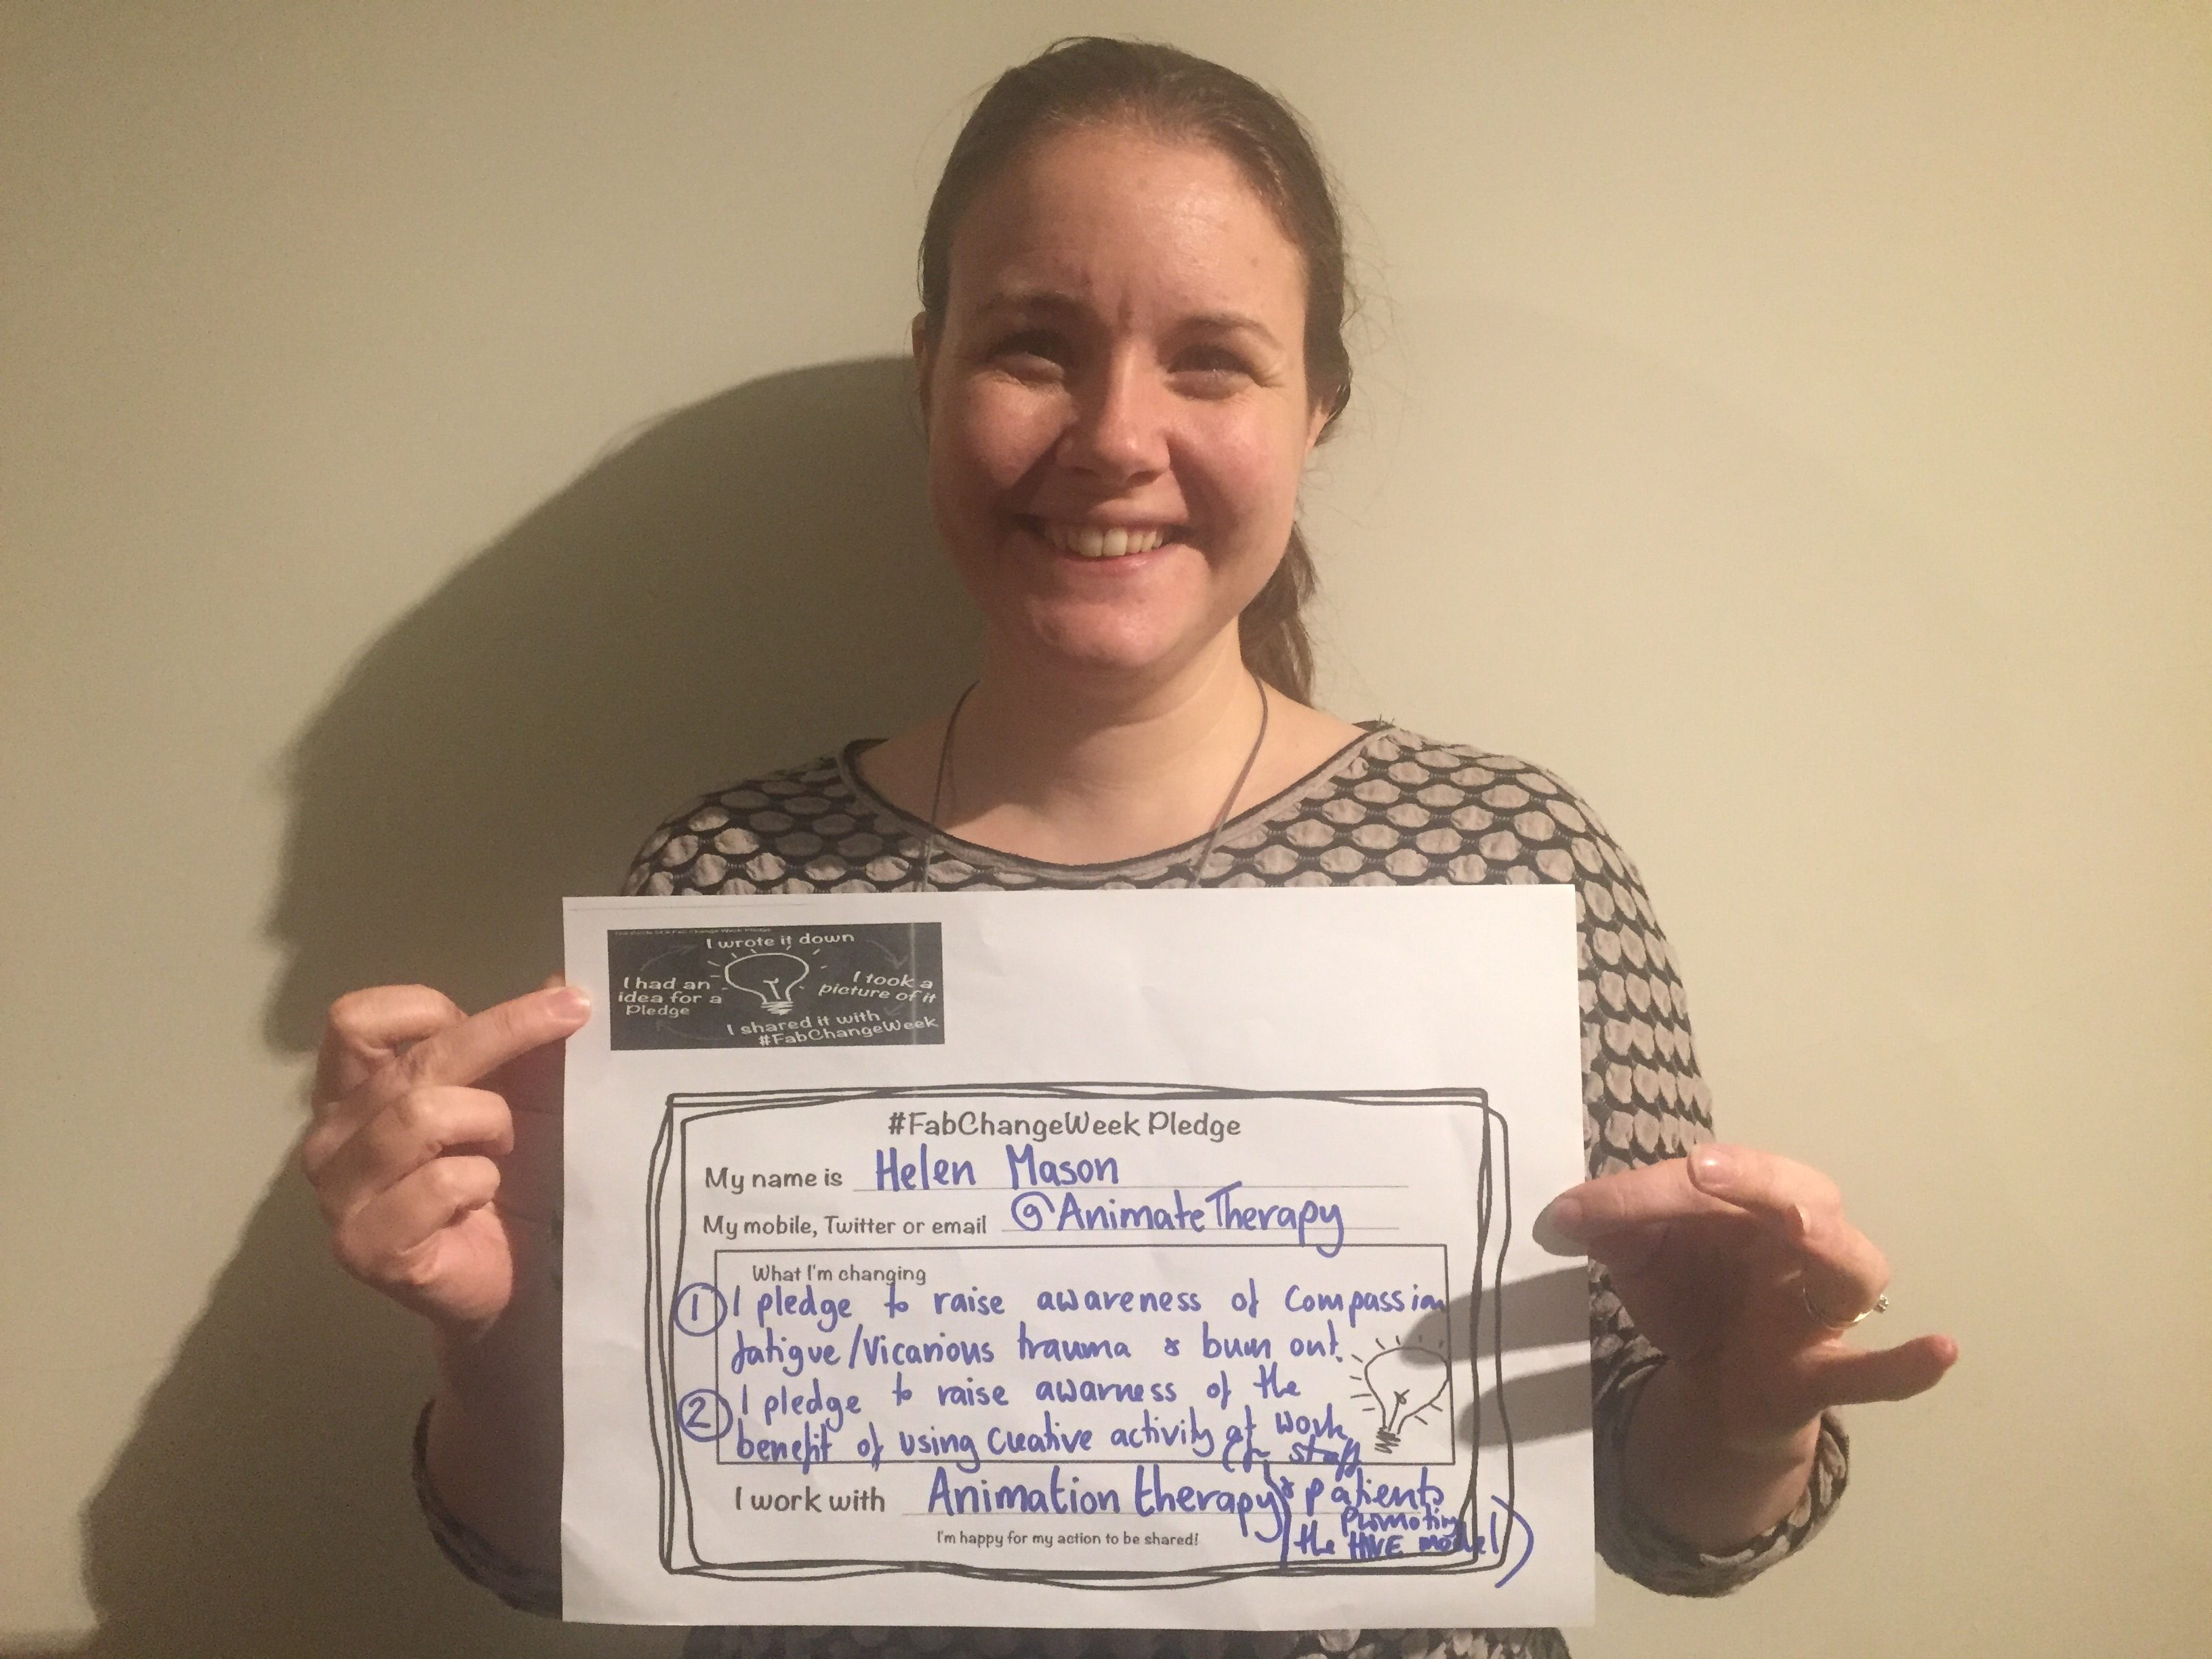 I wrote it down
I had an
idea for a
Pledge
I took a
picture of it
I shared it with
#FabChangeWeek
#FabChangeWeek Pledge
My name is Helen Mason
My mobile, Twitter or email @AnimateTherapy
What I'm changing
① I pledge to raise awareness of compassion
fatigue/Vicarious trauma & burn out.
② I pledge to raise awarness of the
benefit of using creative activity at work
(for staff
& patients
promoting
the HIVE model)
I work with Animation therapy
I'm happy for my action to be shared!